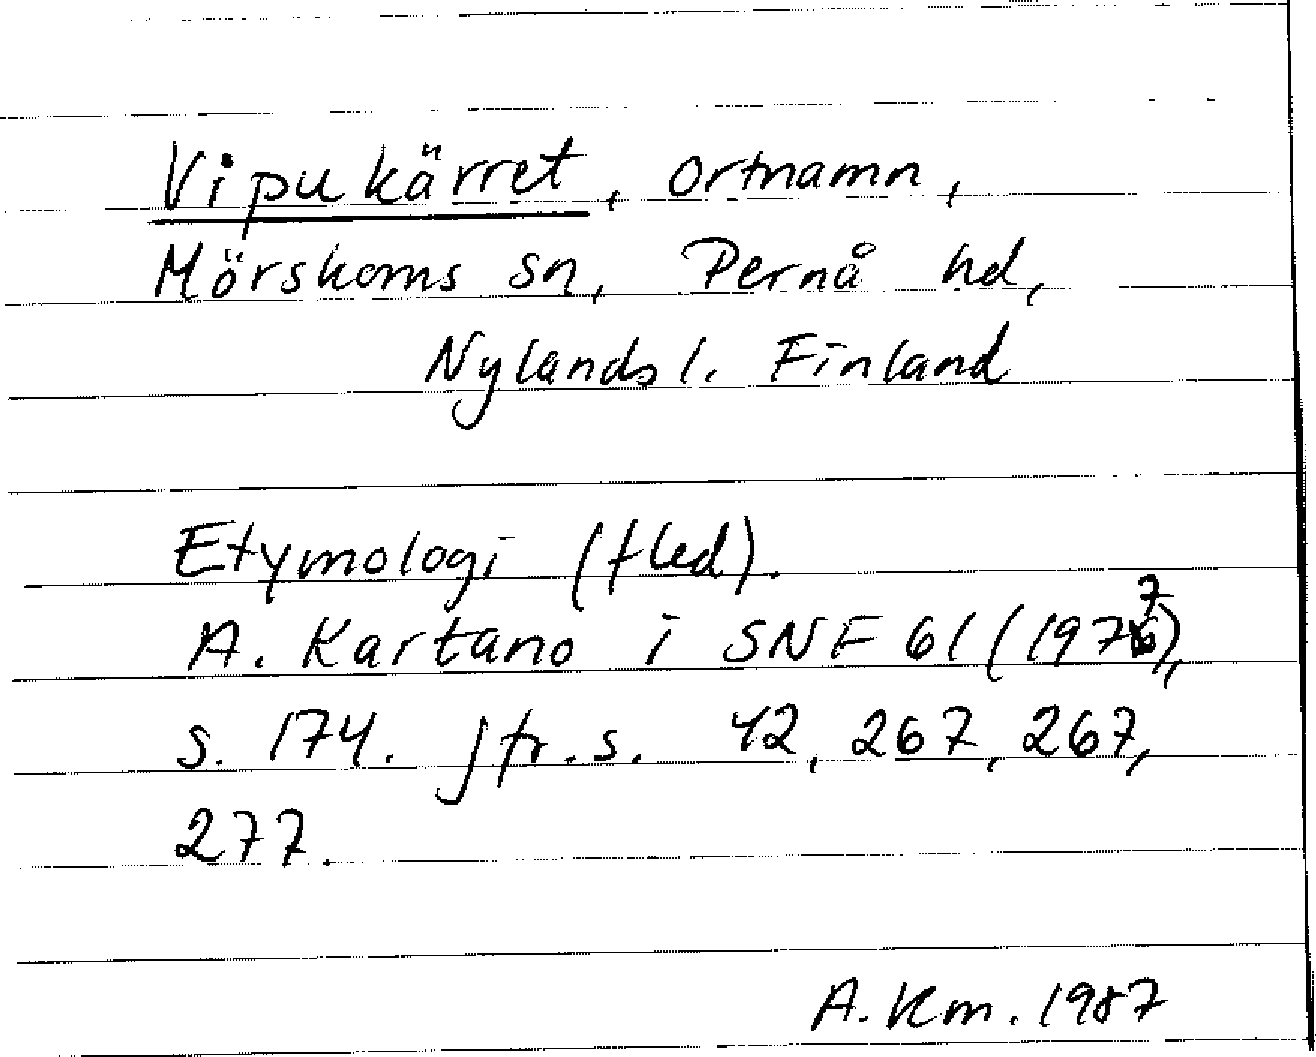 Vipukärret, ortnamn,
Mörskoms sn, Pernå hd,
Nylands l. Finland
Etymologi (fled).
A. Kartano i SNF 61 (1977),
s. 174. Jfr. s. 42, 267, 267,
277.
A. Km. 1987